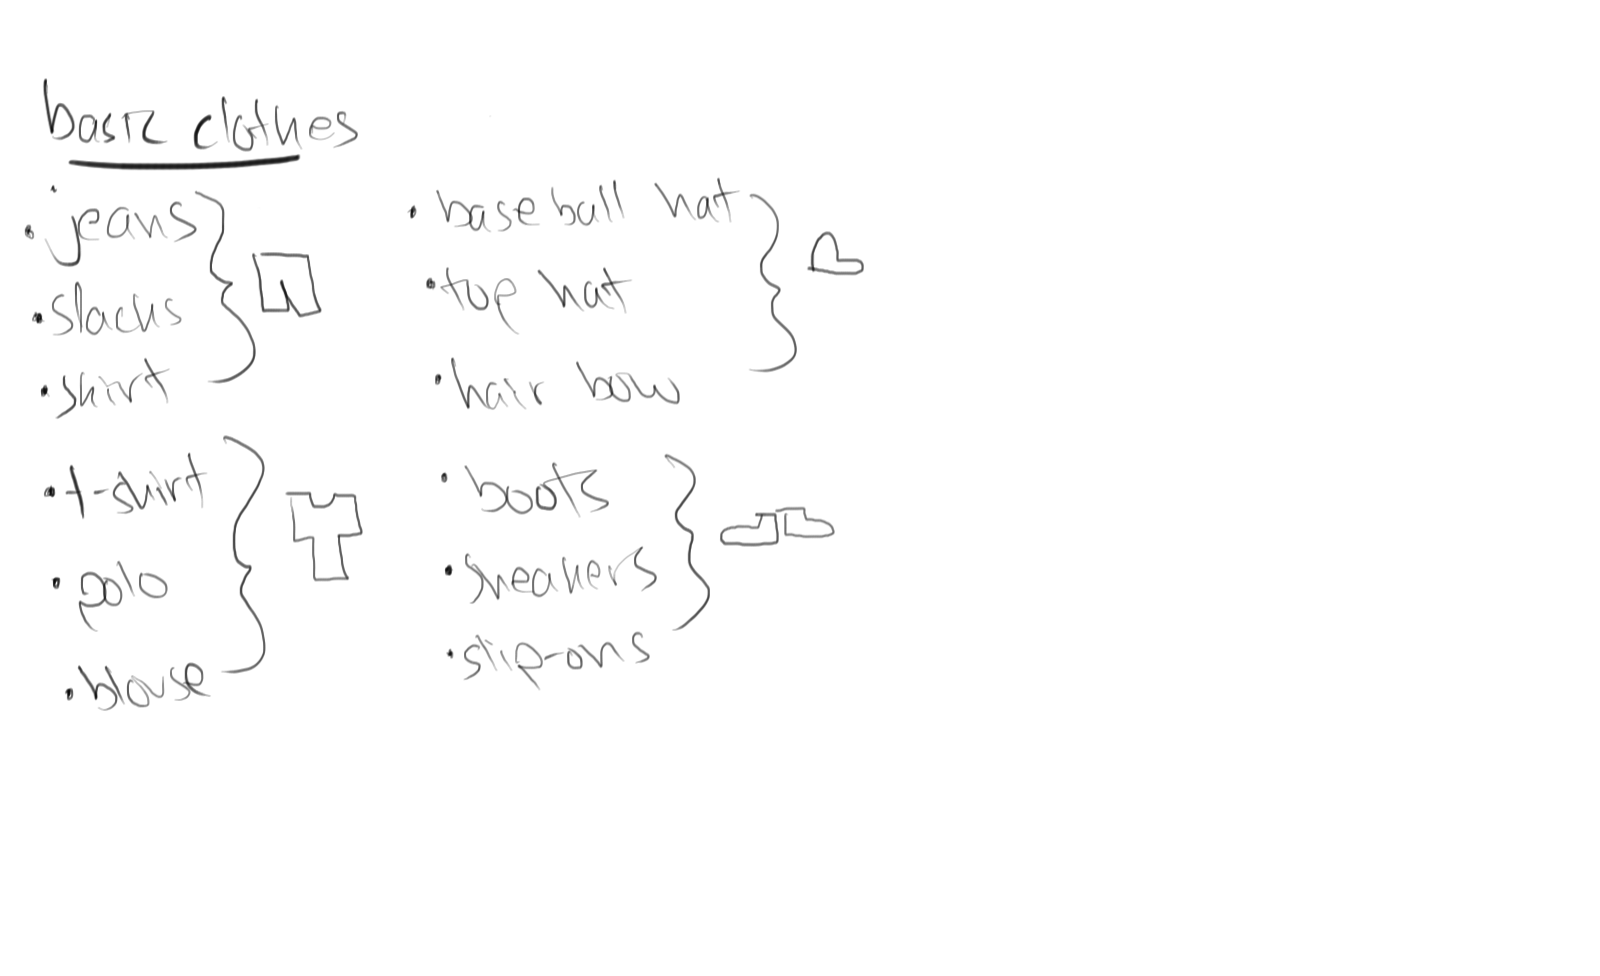 basic clothes
• jeans
• slacks
• skirt
• t-shirt
• polo
• blouse
• baseball hat
• top hat
• hair bow
• boots
• sneakers
• slip-ons